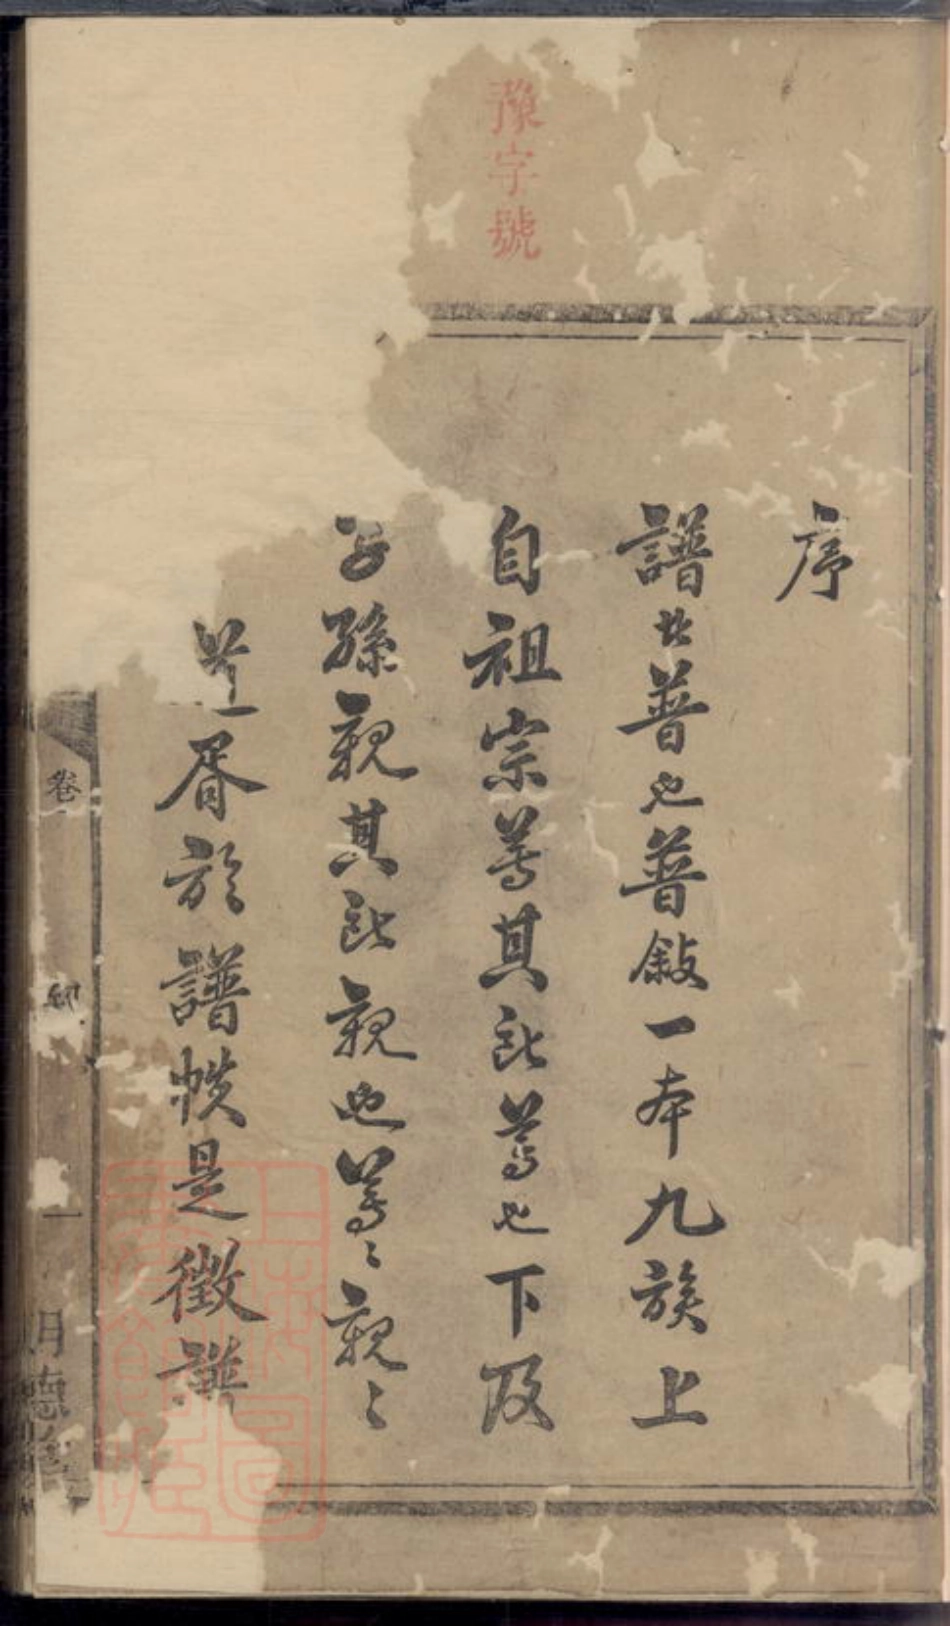 豫字號
序
譜者普也普敘一本九族上
自祖宗尊其所尊也下及
子孫親其所親也尊〻親〻
胥於譜帙是徵譜
卷
一
明德堂